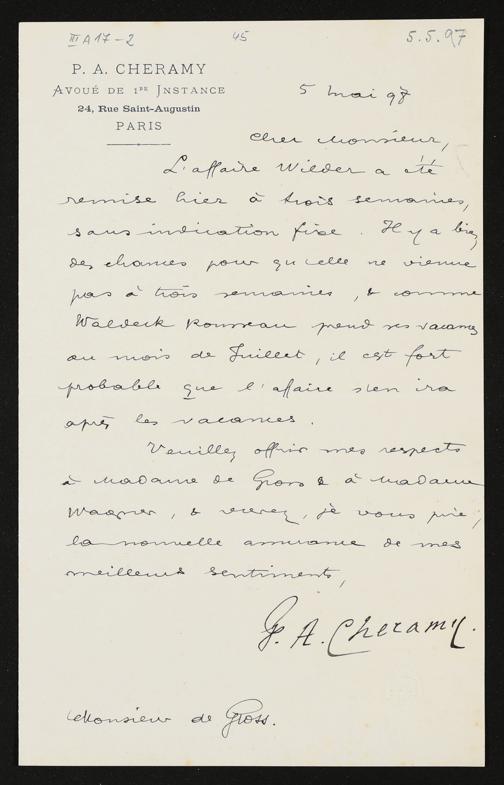 III A 17-2
45
5.5.97
P. A. CHERAMY
AVOUÉ DE 1RE INSTANCE
24, Rue Saint-Augustin
PARIS
5 Mai 97
Cher Monsieur,
L'affaire Wilder a été
remise hier à trois semaines,
sans indication fixe. Il y a bien
des chances pour qu'elle ne vienne
pas à trois semaines, & comme
Waldeck Rousseau prend ses vacances
au mois de Juillet, il est fort
probable que l'affaire s'en ira
après les vacances.
Veuillez offrir mes respects
à Madame de Gross & à Madame
Wagner, & recevez, je vous prie,
la nouvelle assurance de mes
meilleurs sentiments,
P. A. Cheramy.
Monsieur de Gross.